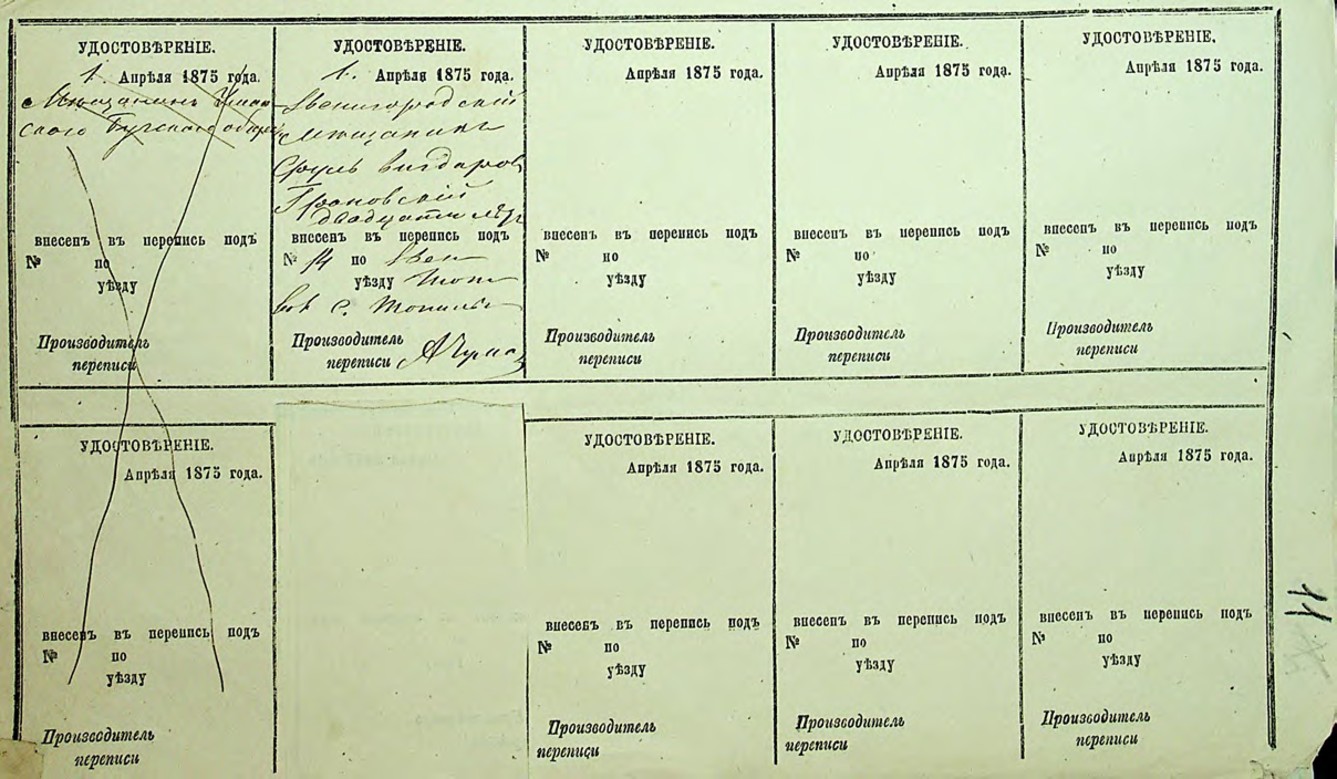 УДОСТОВѢРЕНІЕ.
1. Апрѣля 1875 года.
Мѣщанинъ
ского
внесенъ въ перепись подъ
№ по
уѣзду
Производитель
переписи
УДОСТОВѢРЕНІЕ.
1. Апрѣля 1875 года.
Звенигородскій
мѣщанинъ
Сруль
Грановскій
двадцати лѣтъ
внесенъ въ перепись подъ
№ 14 по Звен
уѣзду
вол с.
Производитель
переписи
УДОСТОВѢРЕНІЕ.
Апрѣля 1875 года.
внесенъ въ перепись подъ
№ по
уѣзду
Производитель
переписи
УДОСТОВѢРЕНІЕ.
Апрѣля 1875 года.
внесенъ въ перепись подъ
№ по
уѣзду
Производитель
переписи
УДОСТОВѢРЕНІЕ.
Апрѣля 1875 года.
внесенъ въ перепись подъ
№ по
уѣзду
Производитель
переписи
УДОСТОВѢРЕНІЕ.
Апрѣля 1875 года.
внесенъ въ перепись подъ
№ по
уѣзду
Производитель
переписи
УДОСТОВѢРЕНІЕ.
Апрѣля 1875 года.
внесенъ въ перепись подъ
№ по
уѣзду
Производитель
переписи
УДОСТОВѢРЕНІЕ.
Апрѣля 1875 года.
внесенъ въ перепись подъ
№ по
уѣзду
Производитель
переписи
УДОСТОВѢРЕНІЕ.
Апрѣля 1875 года.
внесенъ въ перепись подъ
№ по
уѣзду
Производитель
переписи
11